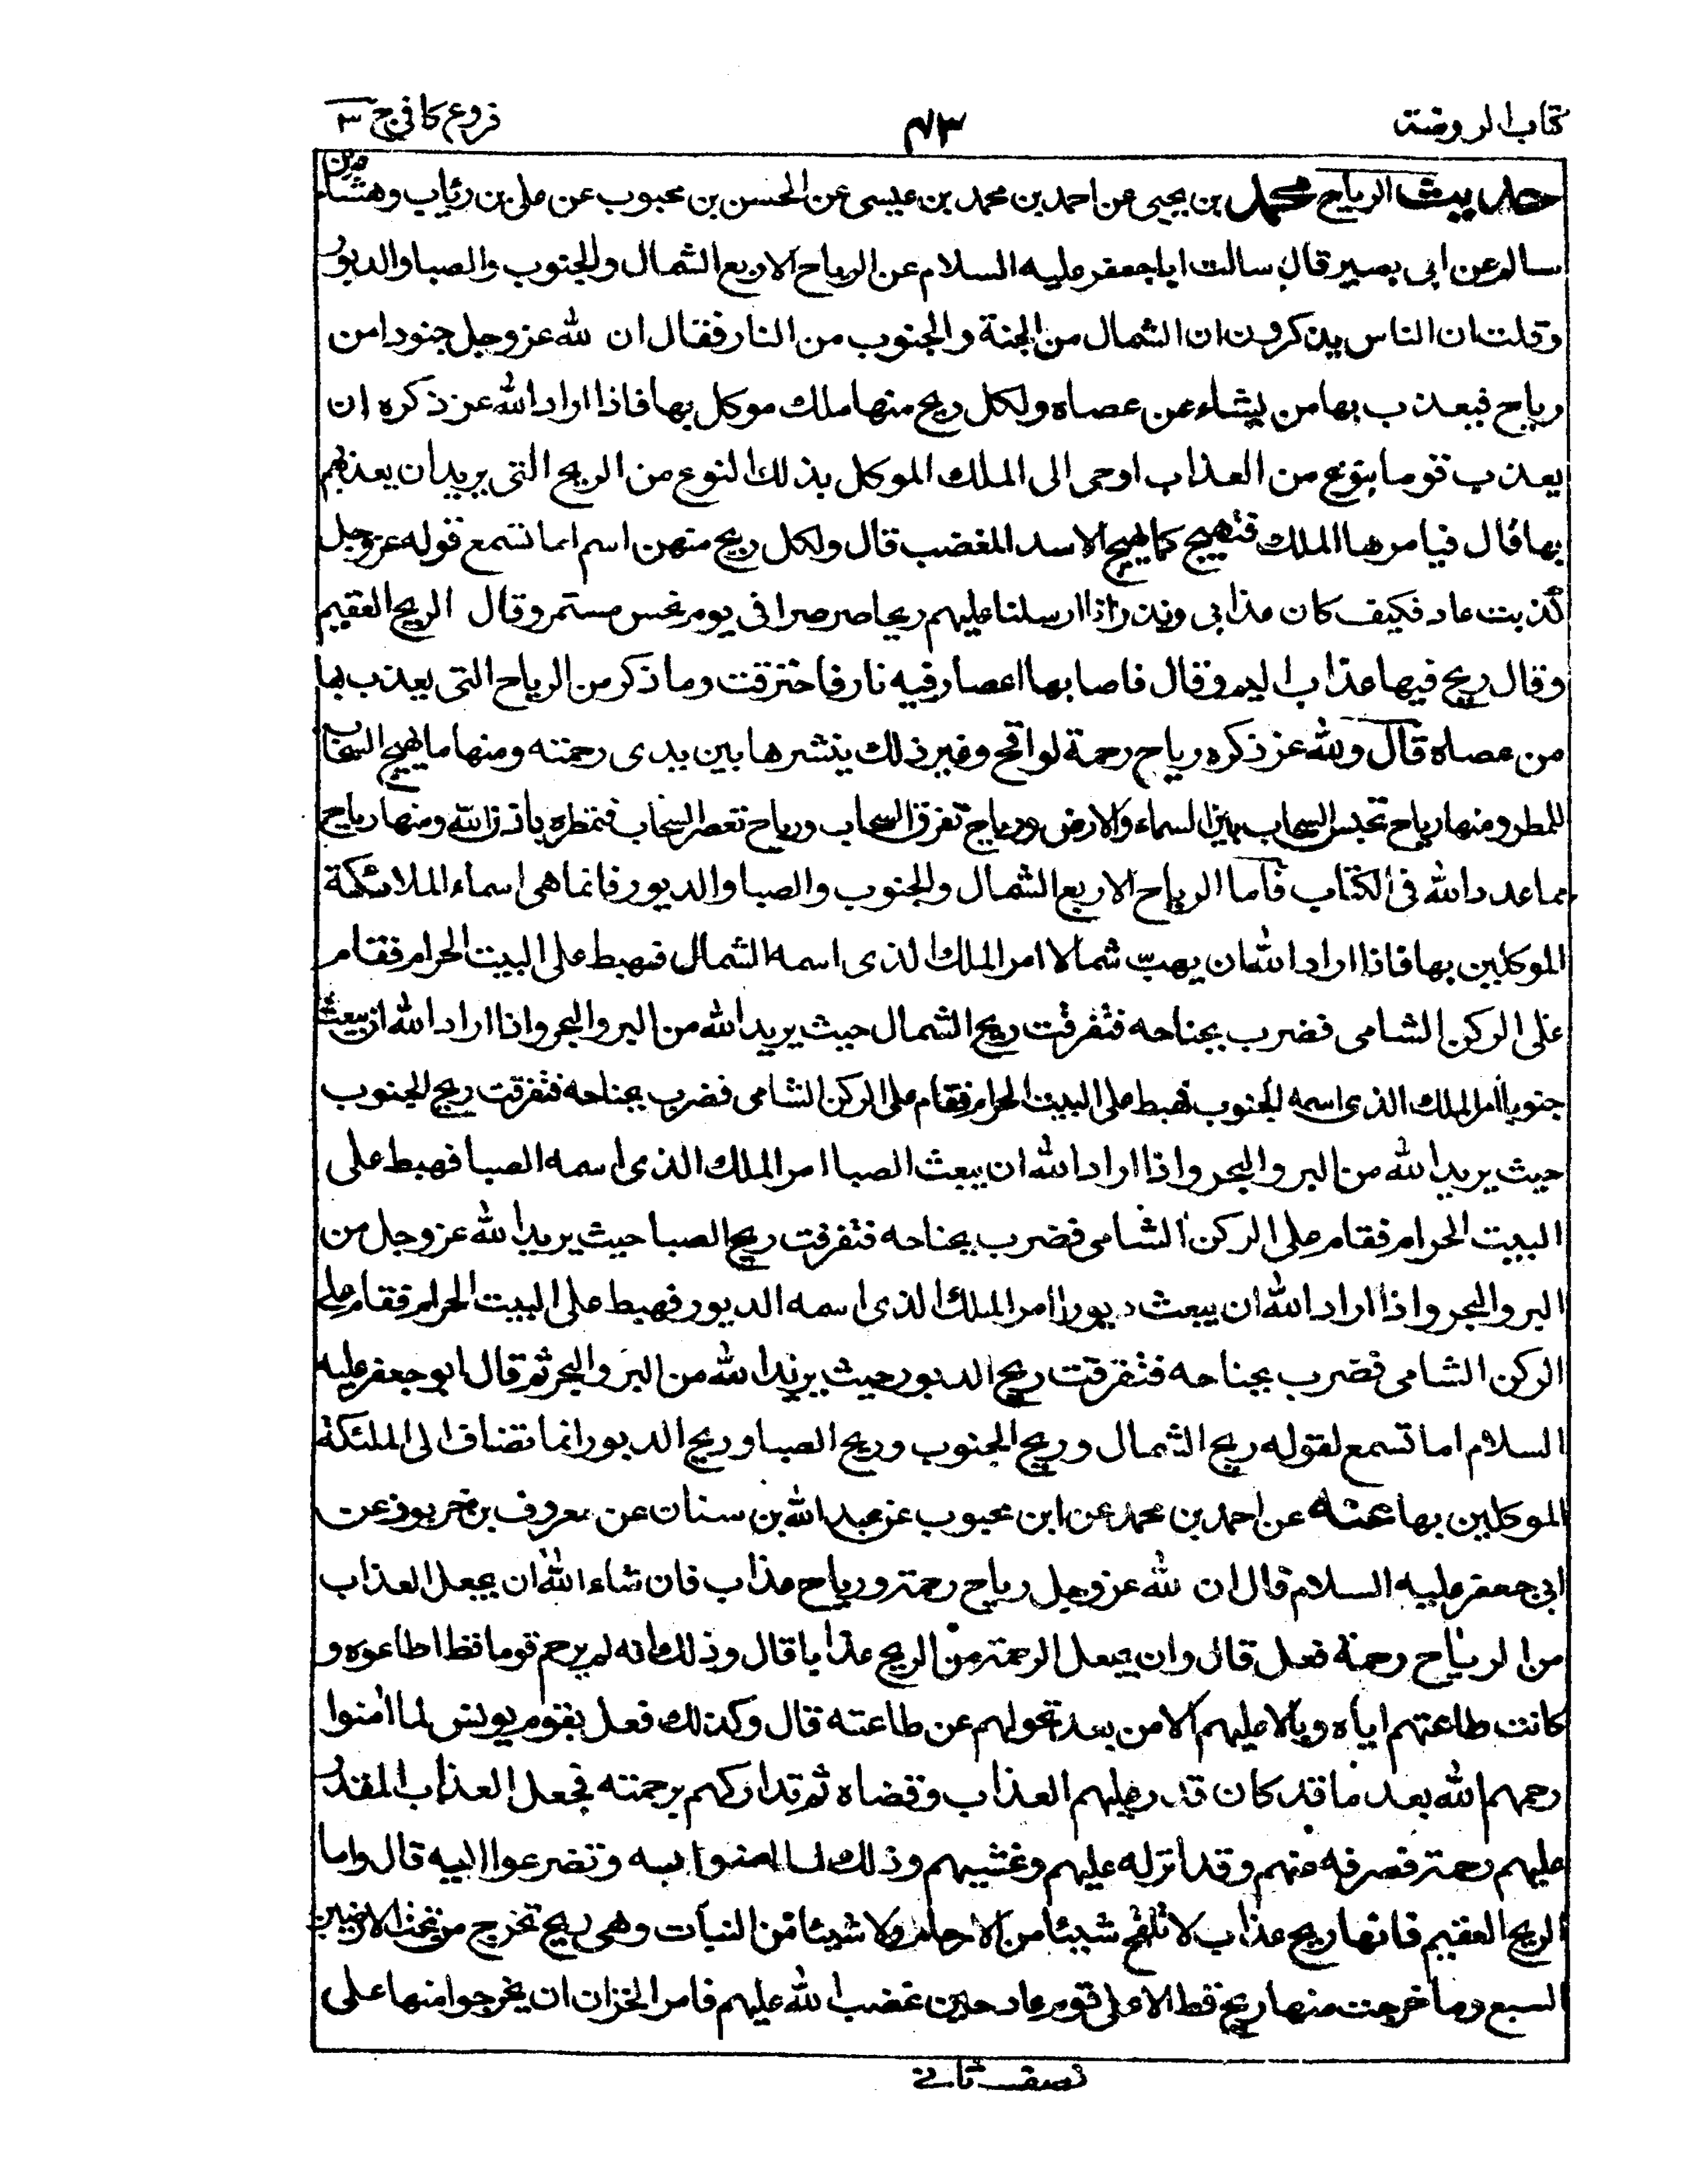 كتاب الروضة
٤٣
فروع كافي ج ٣
حديث الرياح محمد بن يحيى عن احمد بن محمد بن عيسى عن الحسن بن محبوب عن على بن رئاب وهشام بن
سالم عن ابى بصير قال سالت اباجعفر عليه السلام عن الرياح الاربع الشمال والجنوب والصبا والدبور
وقلت ان الناس يذكرون ان الشمال من الجنة والجنوب من النار فقال ان لله عز وجل جنودا من
رياح فيعذب بها من يشاء ممن عصاه ولكل ريح منها ملك موكل بها فاذا اراد الله عز ذكره ان
يعذب قوما بنوع من العذاب اوحى الى الملك الموكل بذلك النوع من الريح التى يريد ان يعذبهم
بها قال فيامرها الملك فتهيج كما يهيج الاسد المغضب قال ولكل ريح منهن اسم اما تسمع قوله عز وجل
كذبت عاد فكيف كان عذابى ونذر انا ارسلنا عليهم ريحا صرصرا فى يوم نحس مستمر وقال الريح العقيم
وقال ريح فيها عذاب اليم وقال فاصابها اعصار فيه نار فاحترقت وما ذكر من الرياح التى يعذب بها
من عصاه قال ولله عز ذكره رياح رحمة لواقح وغير ذلك ينشرها بين يدى رحمته ومنها ما يهيج السحاب
للمطر ومنها رياح تحبس السحاب بين السماء والارض ورياح تفرق السحاب ورياح تعصر السحاب فتمطره باذن الله ومنها رياح
مما عدد الله فى الكتاب فاما الرياح الاربع الشمال والجنوب والصبا والدبور فانما هى اسماء الملائكة
الموكلين بها فاذا اراد الله ان يهب شمالا امر الملك الذى اسمه الشمال فهبط على البيت الحرام فقام
على الركن الشامى فضرب بجناحه فتفرقت ريح الشمال حيث يريد الله من البر والبحر واذا اراد الله ان يبعث
جنوبا امر الملك الذى اسمه الجنوب فهبط على البيت الحرام فقام على الركن الشامى فضرب بجناحه فتفرقت ريح الجنوب
حيث يريد الله من البر والبحر واذا اراد الله ان يبعث الصبا امر الملك الذى اسمه الصبا فهبط على
البيت الحرام فقام على الركن الشامى فضرب بجناحه فتفرقت ريح الصبا حيث يريد الله عز وجل من
البر والبحر واذا اراد الله ان يبعث دبورا امر الملك الذى اسمه الدبور فهبط على البيت الحرام فقام على
الركن الشامى فضرب بجناحه فتفرقت ريح الدبور حيث يريد الله من البر والبحر ثم قال ابو جعفر عليه
السلام اما تسمع لقوله ريح الشمال وريح الجنوب وريح الصبا وريح الدبور انما تضاف الى الملئكة
الموكلين بها عنه عن احمد بن محمد عن ابن محبوب عن عبد الله بن سنان عن معروف بن خربوذ عن
ابى جعفر عليه السلام قال ان لله عز وجل رياح رحمة ورياح عذاب فان شاء الله ان يجعل العذاب
من الرياح رحمة فعل قال وان يجعل الرحمة من الريح عذابا قال وذلك انه لم يرحم قوما قط اطاعوه و
كانت طاعتهم اياه وبالا عليهم الا من بعد تحولهم عن طاعته قال وكذلك فعل بقوم يونس لما امنوا
رحمهم الله بعد ما قد كان قدر عليهم العذاب وقضاه ثم تداركهم برحمته فجعل العذاب المقدر
عليهم رحمة فصرفه عنهم وقد انزله عليهم وغشيهم وذلك لما امنوا به وتضرعوا اليه قال واما
الريح العقيم فانها ريح عذاب لا تلقح شيئا من الارحام ولا شيئا من النبات وهى ريح تخرج من تحت الارضين
السبع وما خرجت منها ريح قط الا على قوم عاد حين غضب الله عليهم فامر الخزان ان يخرجوا منها على
نصف ثانے